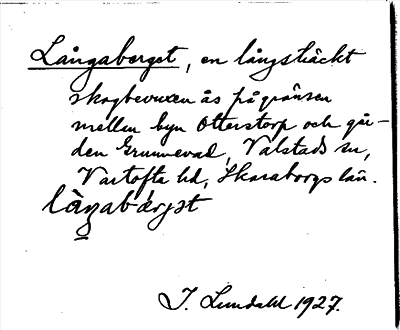 Långaberget, en långsträckt
skogbevuxen ås på gränsen
mellan byn Otterstorp och går-
den Grunnevad, Valstads sn,
Vartofta hd, Skaraborgs län.
làŋabærjət
I. Lundahl 1927.